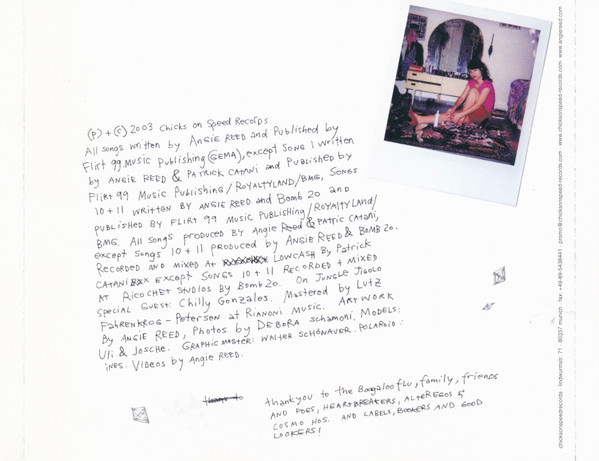 (P) + (C) 2003 Chicks on Speed Records
All songs written by ANGIE REED and Published by
Flirt 99 Music Publishing (GEMA), except SONG 1 written
by ANGIE REED & PATRICK CATANI and PUBLISHED by
Flirt 99 Music Publishing / ROYALTYLAND / BMG, SONGS
10 + 11 WRITTEN BY ANGIE REED and Bomb 20 and
PUBLISHED BY FLIRT 99 MUSIC PUBLISHING / ROYALTYLAND /
BMG. All songs PRODUCED BY Angie Reed & PATRIC CATANI,
except songs 10 + 11 PRODUCED by ANGIE REED & BOMB 20.
RECORDED AND MIXED AT LOWCASH By Patrick
CATANI except SONGS 10 + 11 RECORDED + MIXED
AT RICOCHET STUDIOS BY BOMB 20. ON JUNGLE JIGOLO
SPECIAL GUEST: Chilly Gonzales. Mastered by LUTZ
FAHRENKROG-Petersen at RIANONI MUSIC. ARTWORK
By ANGIE REED, Photos by DEBORA Schamoni. MODELS:
Uli & JOSCHE. GRAPHIC MASTER: WALTER SCHÖNAUER. POLAROID:
INES. Videos by Angie REED.
thankyou to the Boogalooflu, family, friends
AND FOES, HEARTBREAKERS, ALTEREGOS &
COSMO HOS. AND LABELS, BOOKERS AND GOOD
LOOKERS!
chicksonspeedrecords · lindwurmstr. 71 · 80337 munich · fax +49-89-5438441 · promo@chicksonspeed-records.com · www.chicksonspeed-records.com · www.angiereed.com